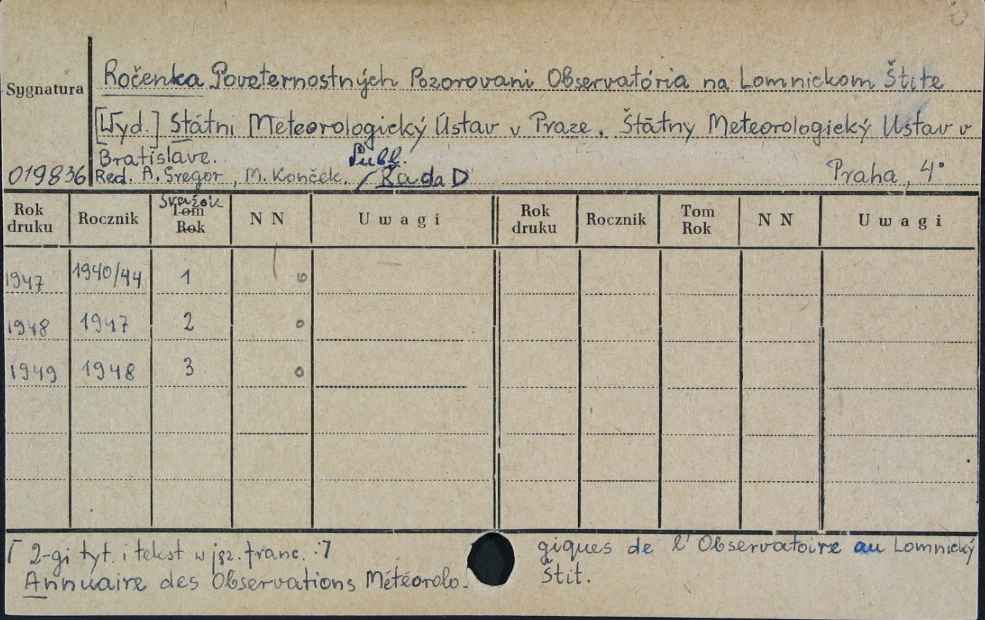 Ročenka Poveternostných Pozorovani Observatória na Lomnickom Štíte
Sygnatura
[Wyd.] Státni Meteorologický Ústav v Praze. Štátny Meteorologický Ústav v
Bratislave. Publ.
019836 Red. A. Gregor, M. Konček. / Řada D Praha, 4°
Rok druku Rocznik Svazok Tom Rok N N Uwagi Rok druku Rocznik Tom Rok N N Uwagi
1947 1940/44 1 0
1948 1947 2 0
1949 1948 3 0
[ 2-gi tyt. i tekst w jęz. franc. :] giques de l'Observatoire au Lomnický
Annuaire des Observations Météorolo- Štít.